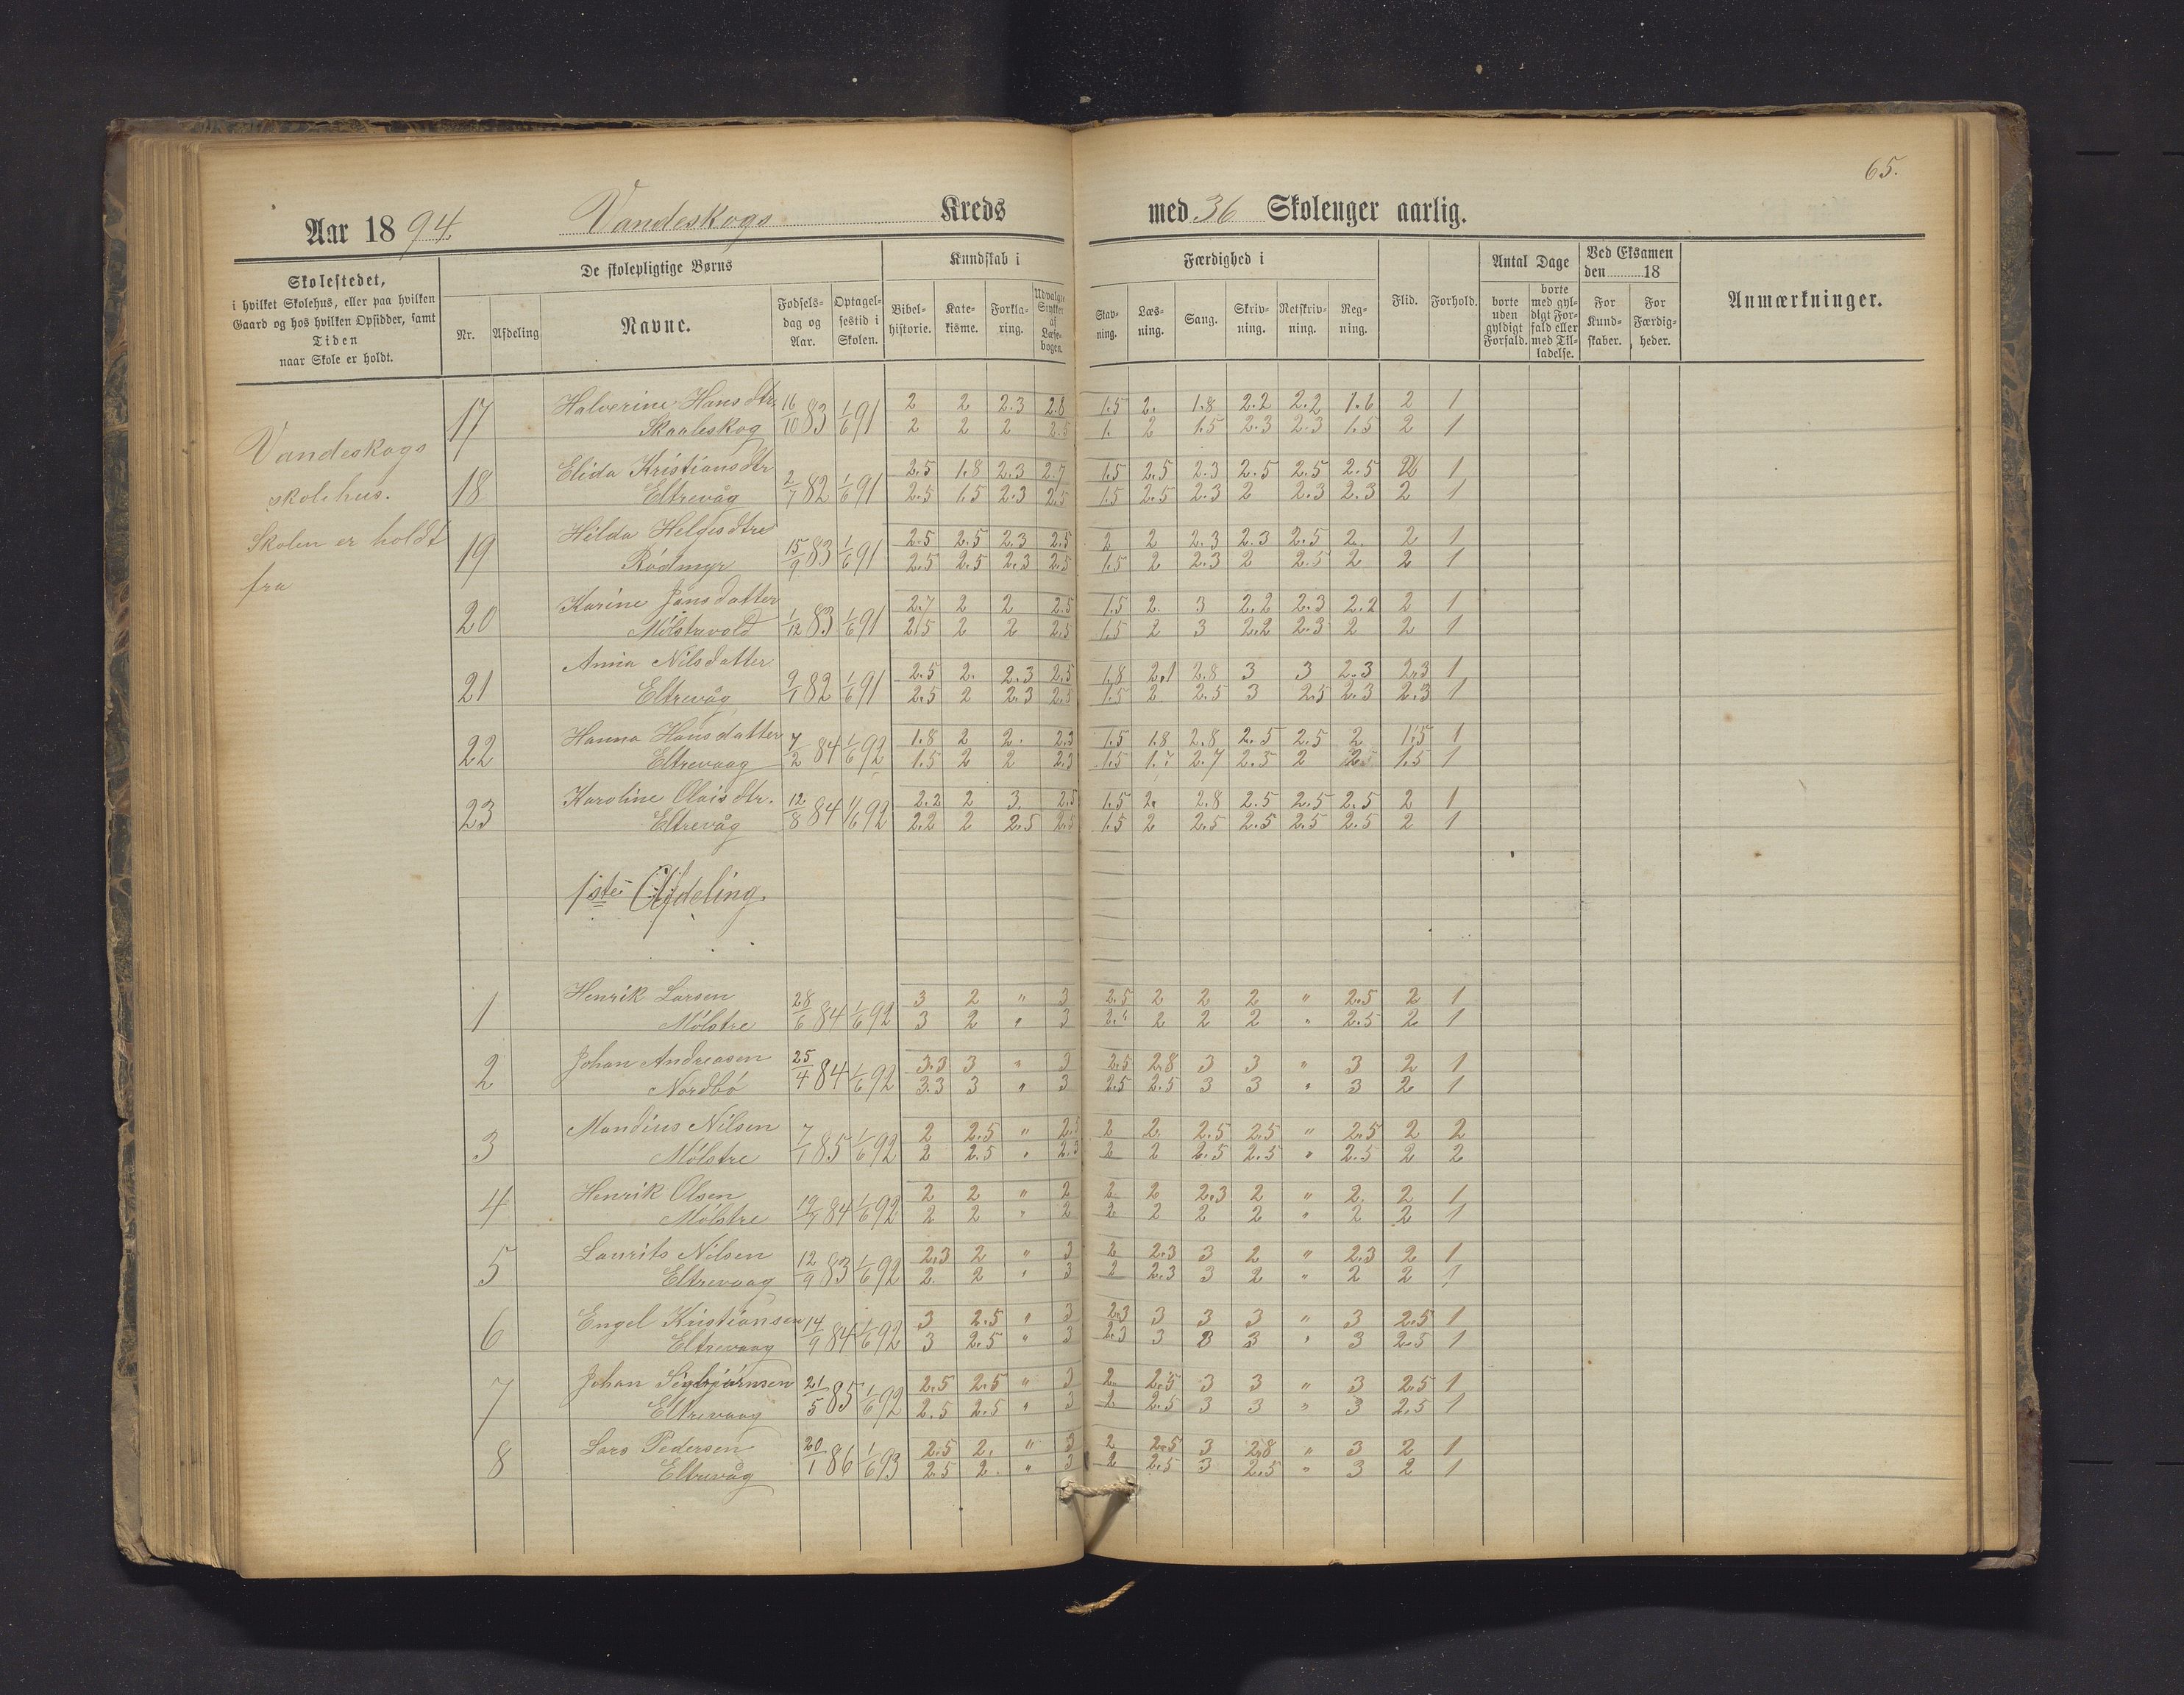 65.
Aar 1894 Vandeskogs Kreds med 36 Skoleuger aarlig.
Skolestedet, i hvilket Skolehus, eller paa hvilken Gaard og hos hvilken Opsidder, samt Tiden naar Skole er holdt.
De skolepligtige Børns
Nr. Afdeling Navne. Fødselsdag og Aar. Optagelsestid i Skolen.
Kundskab i
Bibelhistorie. Katekisme. Forklaring. Udvalgte Stykker af Læsebogen.
Færdighed i
Stavning. Læsning. Sang. Skrivning. Retskrivning. Regning.
Flid. Forhold.
Antal Dage
borte uden gyldigt Forfald. borte med gyldigt Forfald eller med Tilladelse.
Ved Eksamen den 18
For Kundskaber. For Færdigheder.
Anmærkninger.
Vandeskogs
skolehus.
Skolen er holdt
fra
17 Halverine Hansdtr. 16/10 83 1/6 91 2 2 2.3 2.8 1.5 2. 1.8 2.2 2.2 1.6 2 1
Skaaleskog 2 2 2 2.5 1. 2 1.5 2.3 2.3 1.5 2 1
18 Elida Kristiansdtr 2/7 82 1/6 91 2.5 1.8 2.3 2.7 1.5 2.5 2.3 2.5 2.5 2.5 2 1
Eltrevåg 2.5 1.5 2.3 2.5 1.5 2.5 2.3 2 2.3 2.3 2 1
19 Hilda Helgesdtre 15/9 83 1/6 91 2.5 2.5 2.3 2.5 2 2 2.3 2.3 2.5 2. 2 1
Rødmyr 2.5 2.5 2.3 2.5 1.5 2 2.3 2 2.5 2 2 1
20 Karine Jansdatter 1/12 83 1/6 91 2.7 2 2 2.5 1.5 2. 3 2.2 2.3 2.2 2 1
Mølstrevold 2.5 2 2 2.5 1.5 2 3 2.2 2.3 2 2 1
21 Anna Nilsdatter 9/1 82 1/6 91 2.5 2. 2.3 2.5 1.8 2.1 2.8 3 3 2.3 2.3 1
Eltrevåg 2.5 2 2.3 2.5 1.5 2 2.5 3 2.5 2.3 2.3 1
22 Hanna Hansdatter 7/2 84 1/6 92 1.8 2 2. 2.3 1.5 1.8 2.8 2.5 2.5 2 1.5 1
Eltrevaag 1.5 2 2 2.3 1.5 1.7 2.7 2.5 2 2 1.5 1
23 Karoline Olaisdtr. 12/8 84 1/6 92 2.2 2 3. 2.5 1.5 2. 2.8 2.5 2.5 2.5 2 1
Eltrevåg 2.2 2 2.5 2.5 1.5 2 2.5 2.5 2.5 2.5 2 1
1ste Afdeling.
1 Henrik Larsen 28/6 84 1/6 92 3 2 " 3 2.5 2 2 2 " 2.5 2 1
Mølstre 3 2 " 3 2 2 2 " 2.5 2 1
2 Johan Andreasen 25/4 84 1/6 92 3.3 3 " 3 2.5 2.8 3 3 " 3 2 1
Nordbø 3.3 3 " 3 2.5 2.5 3 3 " 3 2 1
3 Mandius Nilsen 7/1 85 1/6 92 2 2.5 " 2.5 2 2 2.5 2.5 " 2.5 2 2
Mølstre 2 2.5 " 2.3 2 2 2.5 2.5 " 2.5 2 2
4 Henrik Olsen 84 1/6 92 2 2 " 2 2 2 2.3 2 " 2. 2 1
Mølstre 2 2 " 2 2 2 2 2 " 2 2 1
5 Laurits Nilsen 12/9 83 1/6 92 2.3 2 " 3 2 2.3 3 2 " 2.3 2 1
Eltrevaag 2. 2 " 3 2 2.3 3 2 " 2 2 1
6 Engel Kristiansen 14/9 84 1/6 92 3 2.5 " 3 2.3 3 3 3 " 3 2.5 1
Eltrevaag 3 2.5 " 3 2.3 3 3 3 " 3 2.5 1
7 Johan Sigbjørnsen 21/5 85 1/6 92 2.5 2.5 " 3 2 2.5 3 3 " 3 2.5 1
Eltrevaag 2.5 2.5 " 3 2 2.5 3 3 " 3 2.5 1
8 Lars Pedersen 20/1 86 1/6 93 2.5 2. " 3 2 2.5 3 2.8 " 3 2 1
Eltrevåg 2.5 2. " 3 2 2.5 3 2.5 " 3 2 1